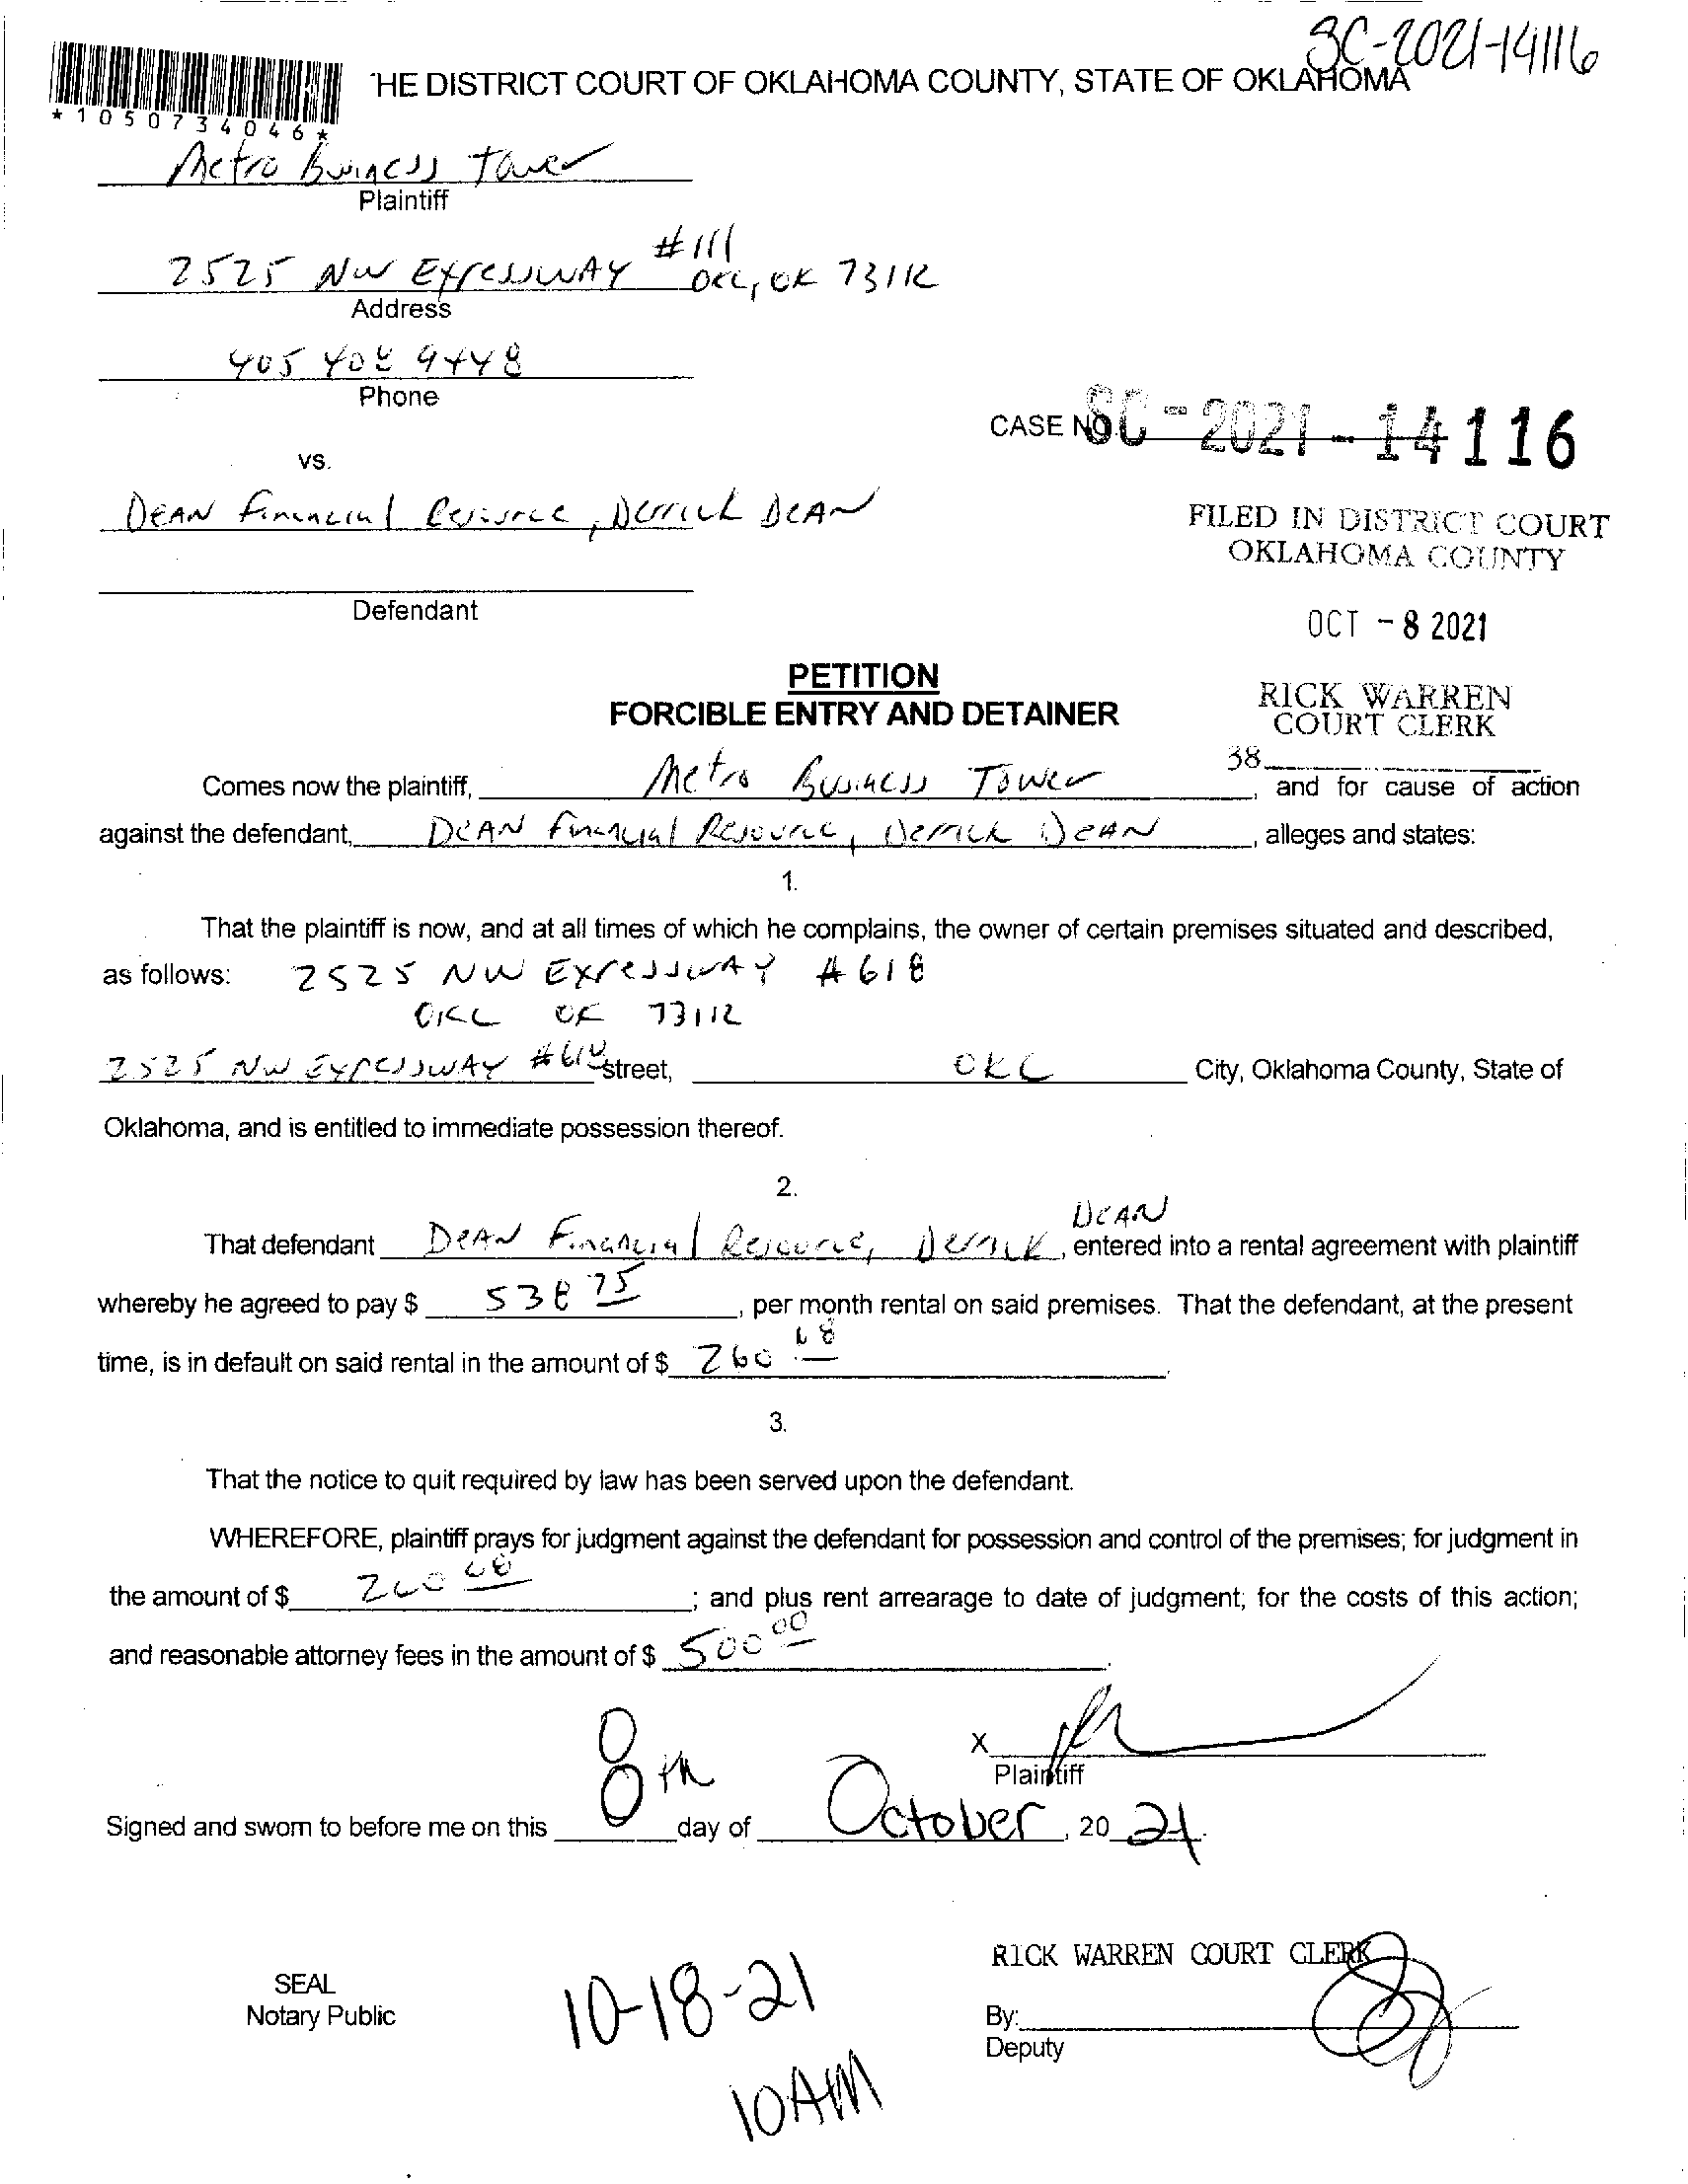 SC-2021-14116
THE DISTRICT COURT OF OKLAHOMA COUNTY, STATE OF OKLAHOMA
*1050734046*
Metro Business Tower
Plaintiff
2525 NW Expressway #111 OKC, OK 73112
Address
405 408 9448
Phone
CASE NO. SC-2021-14116
vs.
Dean Financial Resource, Derrick Dean
FILED IN DISTRICT COURT
OKLAHOMA COUNTY
Defendant
OCT -8 2021
PETITION
FORCIBLE ENTRY AND DETAINER
RICK WARREN
COURT CLERK
38
Comes now the plaintiff, Metro Business Tower, and for cause of action
against the defendant, Dean Financial Resource, Derrick Dean, alleges and states:
1.
That the plaintiff is now, and at all times of which he complains, the owner of certain premises situated and described,
as follows: 2525 NW Expressway #618
OKC OK 73112
2525 NW Expressway #618 street, OKC City, Oklahoma County, State of
Oklahoma, and is entitled to immediate possession thereof.
2.
That defendant Dean Financial Resource, Derrick Dean, entered into a rental agreement with plaintiff
whereby he agreed to pay $ 538 75, per month rental on said premises. That the defendant, at the present
time, is in default on said rental in the amount of $ 260 68.
3.
That the notice to quit required by law has been served upon the defendant.
WHEREFORE, plaintiff prays for judgment against the defendant for possession and control of the premises; for judgment in
the amount of $ 260 68; and plus rent arrearage to date of judgment; for the costs of this action;
and reasonable attorney fees in the amount of $ 500 00.
X
Plaintiff
Signed and sworn to before me on this 8th day of October, 20 21.
RICK WARREN COURT CLERK
SEAL
Notary Public
10-18-21
By:
Deputy
10AM